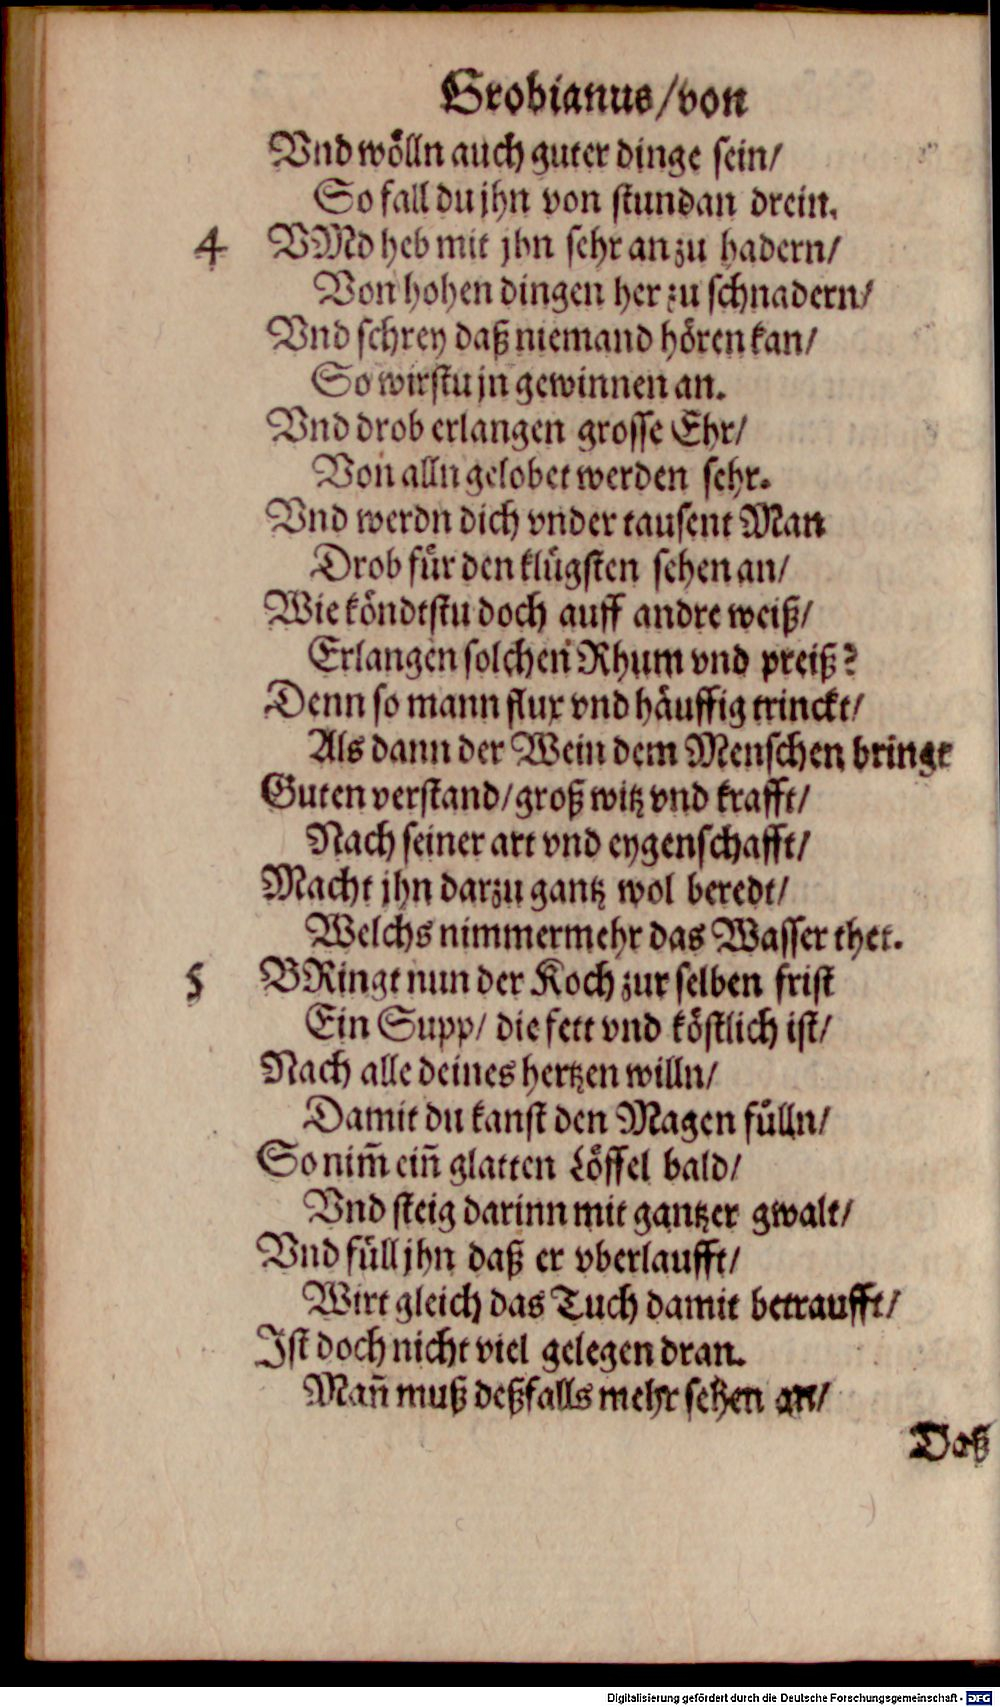 Grobianus/von
Vnd wölln auch guter dinge sein/
So fall du jhn von stundan drein.
4 VMd heb mit jhn sehr an zu hadern/
Von hohen dingen her zu schnadern/
Vnd schrey daß niemand hören kan/
So wirstu jn gewinnen an.
Vnd drob erlangen grosse Ehr/
Von alln gelobet werden sehr.
Vnd werdn dich vnder tausent Man
Drob für den klügsten sehen an/
Wie köndtstu doch auff andre weiß/
Erlangen solchen Rhum vnd preiß?
Denn so mann flux vnd häuffig trinckt/
Als dann der Wein dem Menschen bringt
Guten verstand/groß witz vnd krafft/
Nach seiner art vnd eygenschafft/
Macht jhn darzu gantz wol beredt/
Welchs nimmermehr das Wasser thet.
5 BRingt nun der Koch zur selben frist
Ein Supp/ die fett vnd köstlich ist/
Nach alle deines hertzen willn/
Damit du kanst den Magen fülln/
So nim̃ eiñ glatten Löffel bald/
Vnd steig darinn mit gantzer gwalt/
Vnd füll jhn daß er vberlaufft/
Wirt gleich das Tuch damit betraufft/
Ist doch nicht viel gelegen dran.
Mañ muß deßfalls mehr sehen an/
Daß
Digitalisierung gefördert durch die Deutsche Forschungsgemeinschaft - DFG